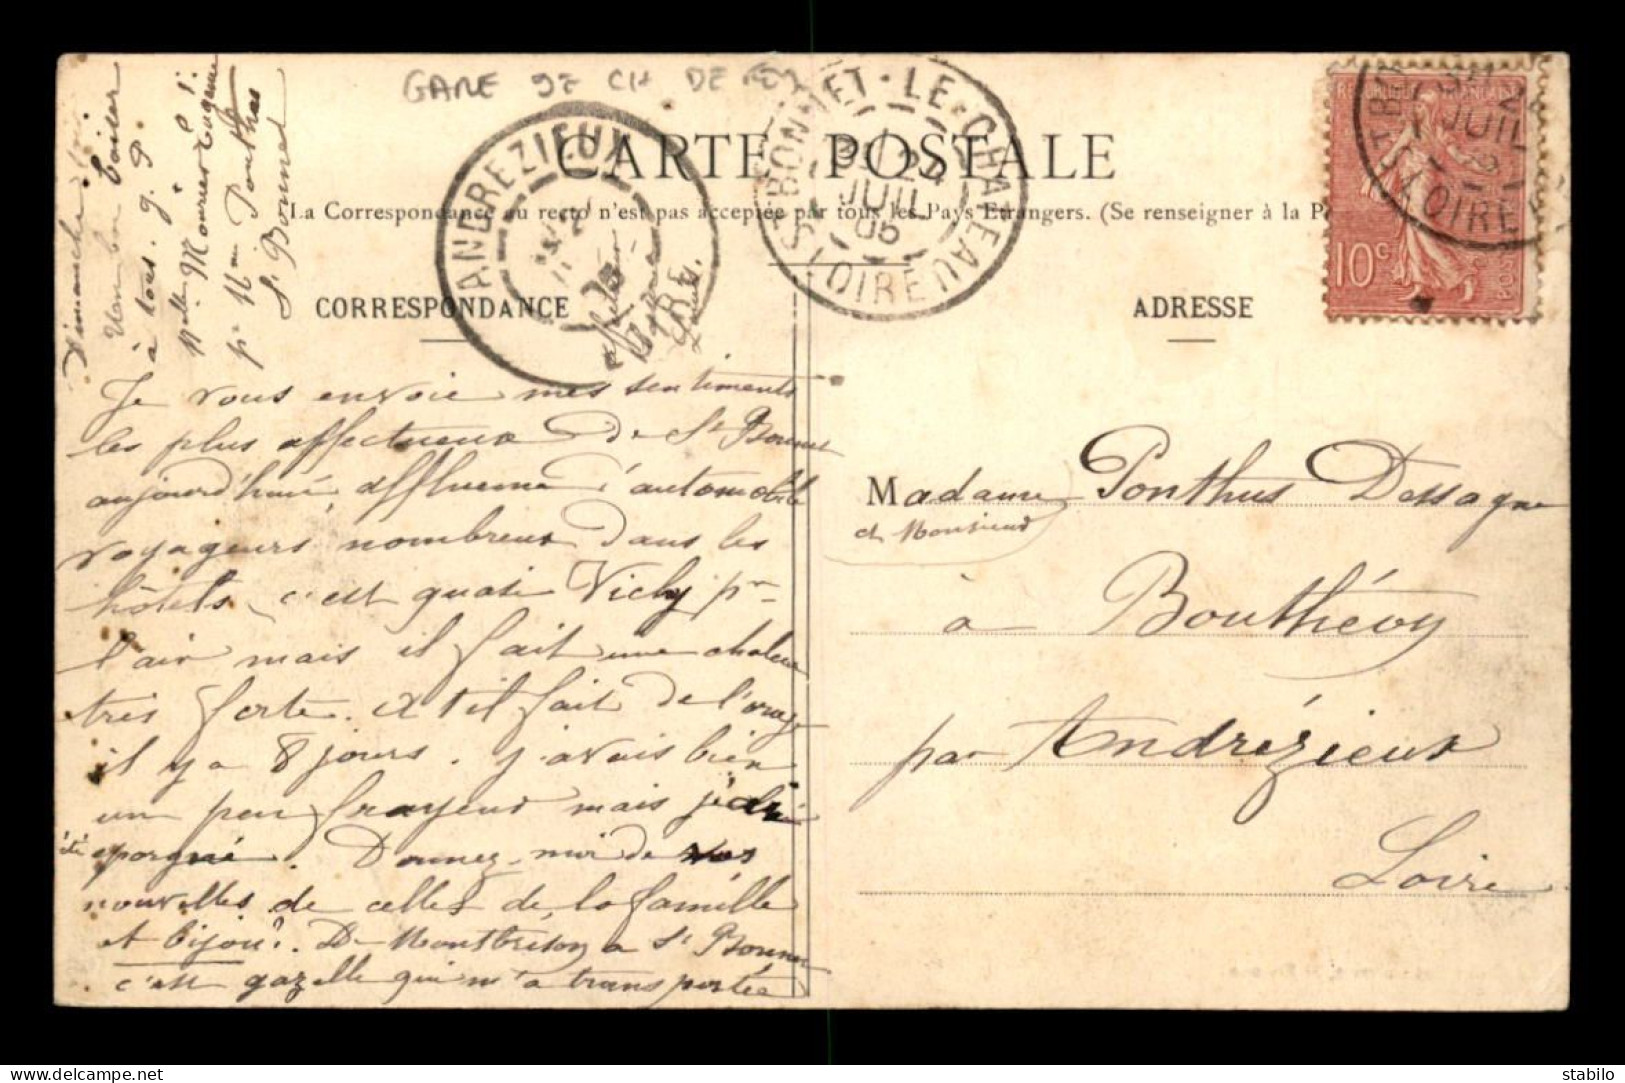 GARE DE CH DE
CARTE POSTALE
La Correspondance au recto n'est pas acceptée par tous les Pays Etrangers. (Se renseigner à la P
CORRESPONDANCE
ADRESSE
ANDREZIEUX
ST BONNET-LE-CHATEAU
24
JUIL
05
LOIRE
10c
JUIL
LOIRE
Dimanche
Un bon baiser
à tous. J. P.
Melle Mourier Eugénie
pr Mme Ponthus
St Bonnet
Je vous envoie mes sentiments
les plus affectueux de St Bonnet
aujourd'hui affluence d'automobile
voyageurs nombreux dans les
hôtels, c'est quasi Vichy pr
l'air mais il fait une chaleur
très forte. et il fait de l'orage
il y a 8 jours. j'avais bien
un peu frayeur mais j'ai
été épargnée. Donnez-moi de vos
nouvelles de celles de la famille
et bijou?. De Montbrison a St Bonnet
c'est gazelle qui m'a transportée
Madame Ponthus Dessagne
et Monsieur
à Bouthéon
par Andrézieux
Loire
delcampe.net
stabilo